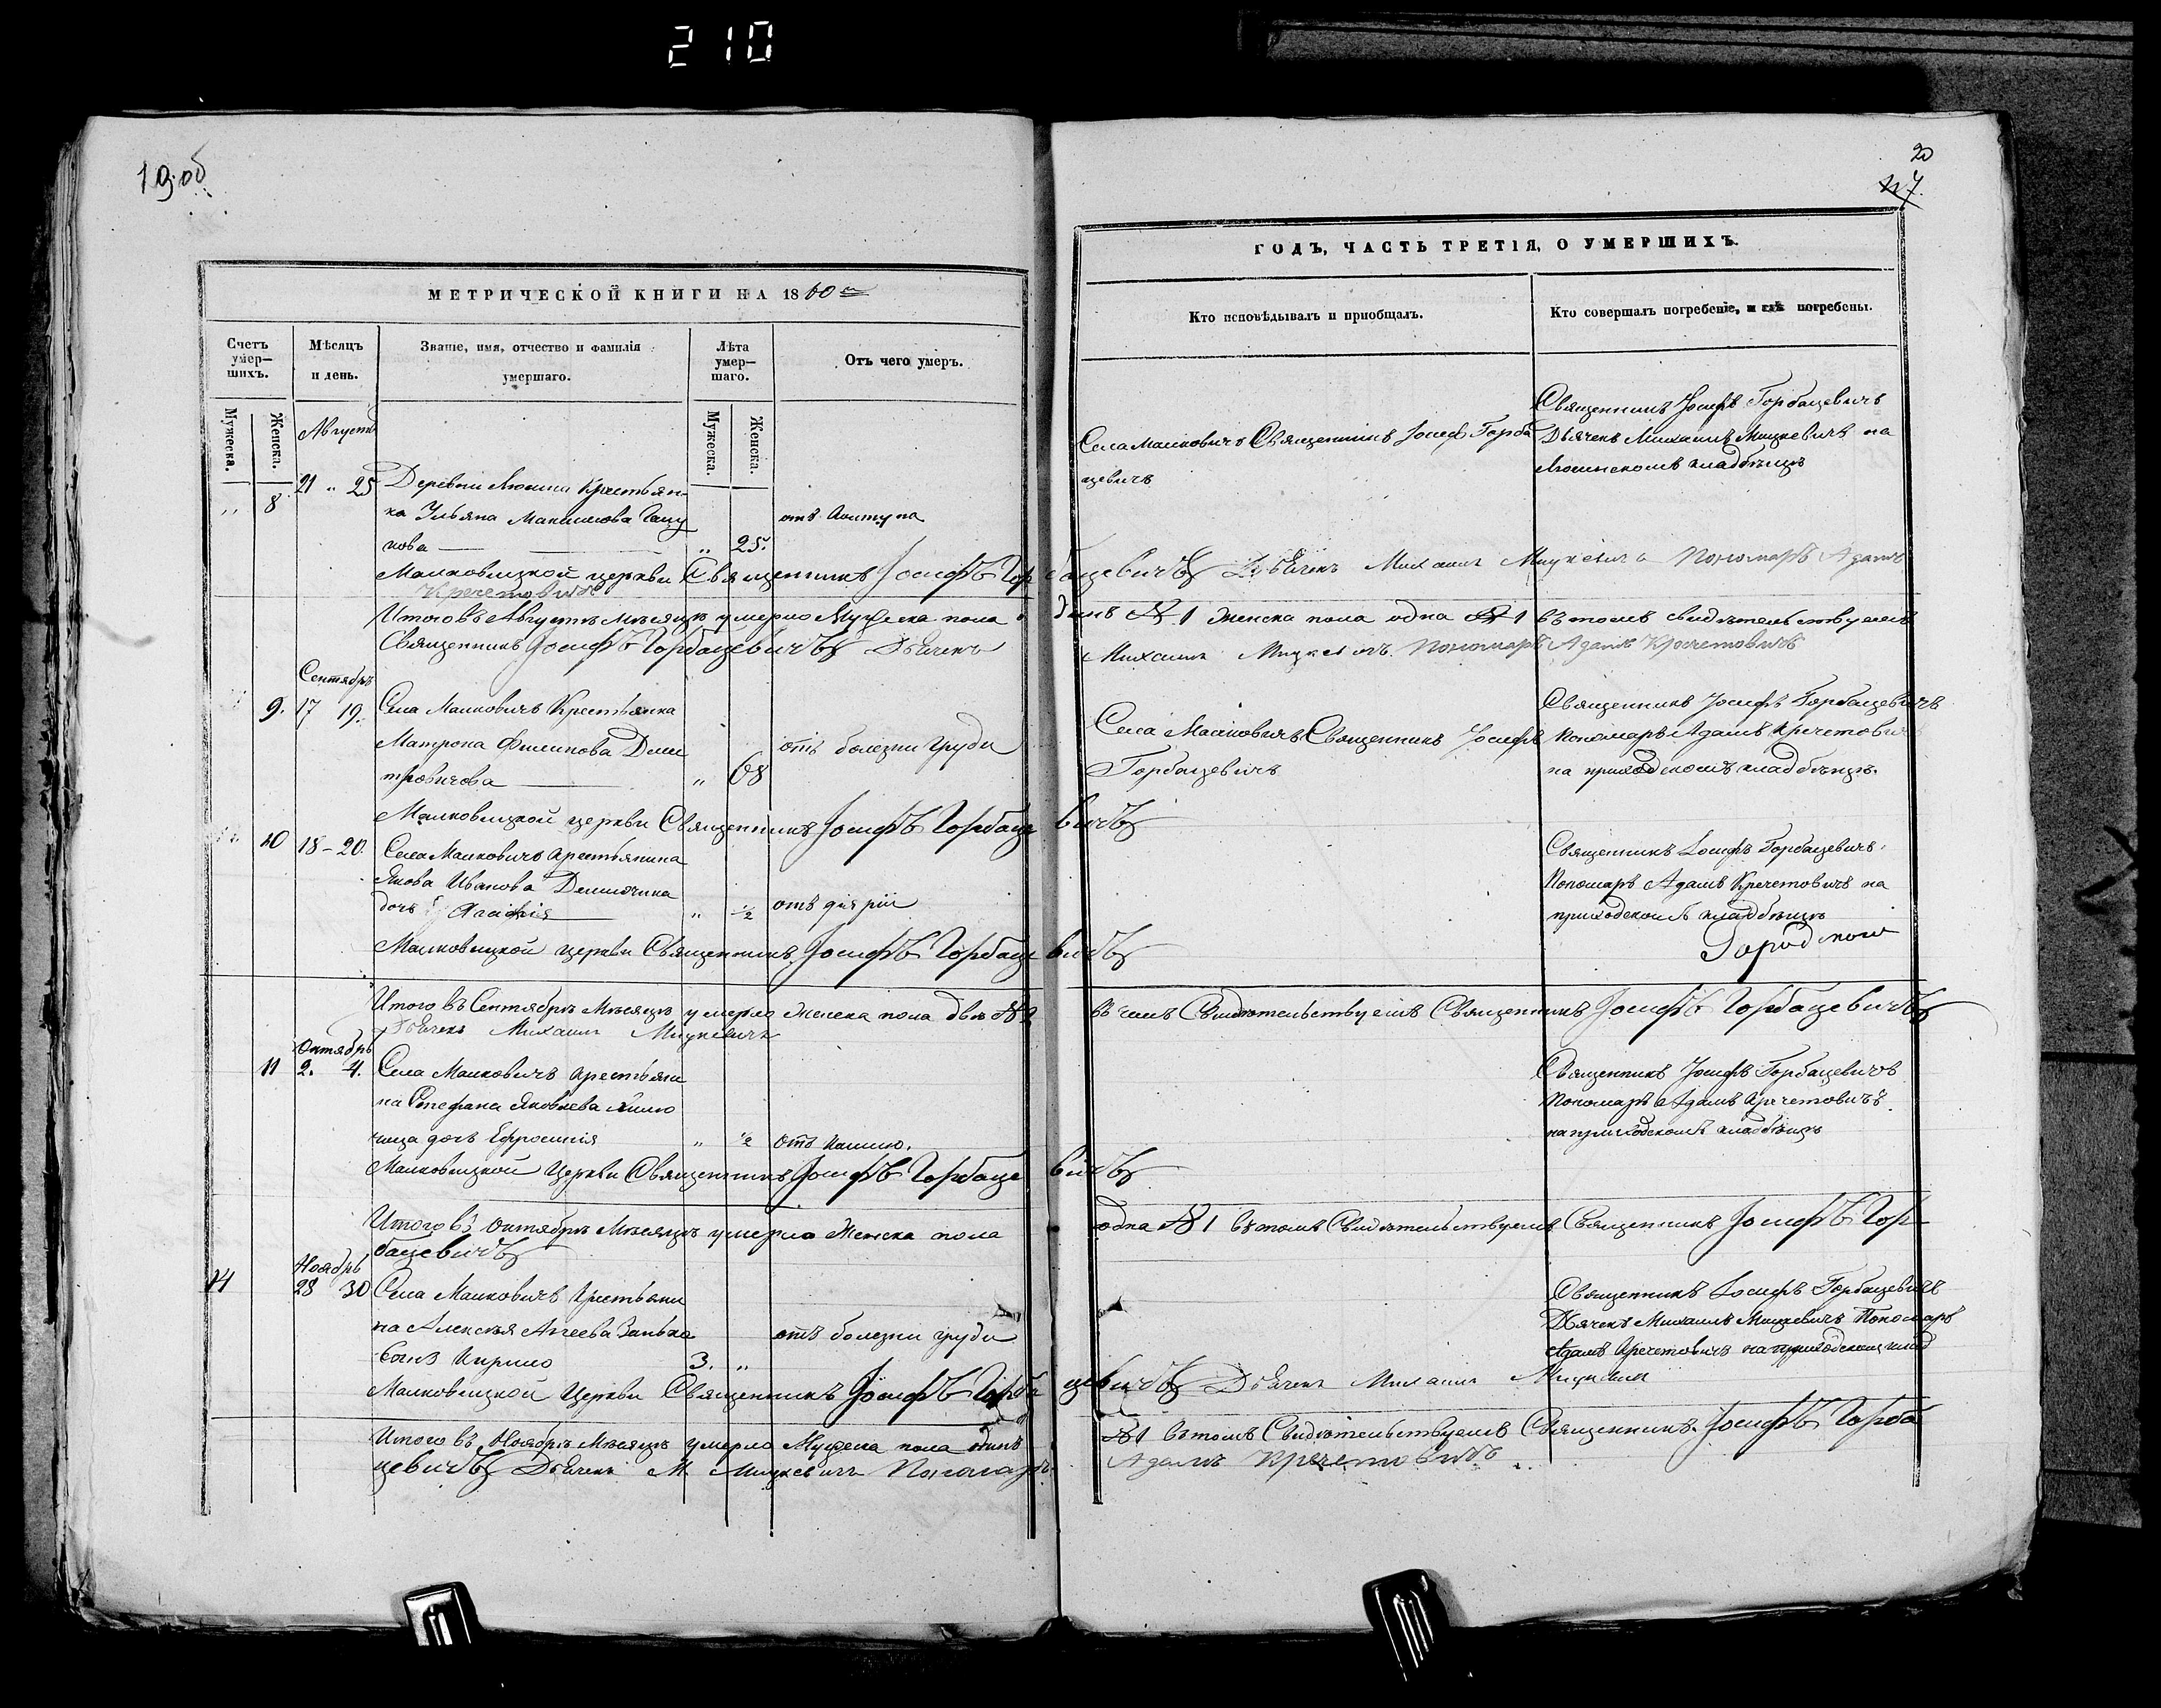 210
19 об
МЕТРИЧЕСКОЙ КНИГИ НА 1860
Счетъ умер-шихъ.
Мужеска.
Женска.
Мѣсяцъ и день.
Званіе, имя, отчество и фамилія умершаго.
Лѣта умер-шаго.
Мужеска.
Женска.
Отъ чего умеръ.
Августъ
8 21 " 25 Деревни Люсина Крестьян-
ка Ульяна Максимова
кова " 25.
Малковицкой церкви Священникъ Іосифъ Гор
Кречетовичъ
Итого въ Августѣ Мѣсяцѣ умерло Мужеска пола о
Священникъ Іосифъ Горбацевичъ Дьячекъ
Сентябрь
9. 17 19. Села Малковичъ Крестьянка
Матрона Филипова Дми отъ болезни груди
тровичова " 68
Малковицкой церкви Священникъ Іосифъ Горбаце
10 18-20. Села Малковичъ крестьянина
Якова Иванова
дочь " 1/2 отъ діяріи
Малковицкой церкви Священникъ Іосифъ Горбаце
Итого въ Сентябрѣ Мѣсяцѣ умерло Женска пола двѣ № 2
Дьячекъ Михаилъ Мицкевичъ
Октябрь
11 2. 4. Села Малковичъ крестьяни
на Стефана Яковлева
дочь Ефросинія " 1/2 отъ кашлю.
Малковицкой Церкви Священникъ Іосифъ Горбаце
Итого въ Октябрѣ Мѣсяцѣ умерло Женска пола
бацевичъ
Ноябрь
14 28 30 Села Малковичъ Крестьяни
на Алексѣя Агеева Занько отъ болезни груди
сынъ Кирило 3. "
Малковицкой Церкви Священникъ Іосифъ Горба
Итого въ Ноябрѣ Мѣсяцѣ умерло Мужеска пола одинъ
цевичъ Дьячекъ М Мицкевичъ Пономарь
20
ГОДЪ, ЧАСТЬ ТРЕТІЯ, О УМЕРШИХЪ.
Кто исповѣдывалъ и приобщалъ.
Кто совершалъ погребеніе, и гдѣ погребены.
Села Малковичъ Священникъ Іосиф Горба
цевичъ
Священникъ Іосифъ Горбацевичъ
Дьячекъ Михаилъ Мицкевичъ на
Люсинскомъ кладбѣщѣ
бацевичъ Дьячекъ Михаилъ Мицкевичъ Пономарь Адамъ
динъ № 1 Женска пола одна № 1 въ томъ свидѣтельствуемъ
Михаилъ Мицкевичъ Пономарь Адамъ Кречетовичъ
Села Малковичъ Священникъ Іосифъ
Горбацевичъ
Священникъ Іосифъ Горбацевичъ
Пономарь Адамъ Кречетовичъ
на приходскомъ кладбѣщѣ.
вичъ
Священникъ Іосифъ Горбацевичъ
Пономарь Адамъ Кречетовичъ на
приходскомъ кладбѣщѣ
вичъ
въ чемъ Свидѣтельствуемъ Священникъ Іосифъ Горбацевичъ
Священникъ Іосифъ Горбацевичъ
Пономарь Адамъ Кречетовичъ
на приходскомъ кладбѣщѣ
вичъ
одна № 1 въ томъ Свидѣтельствуемъ Священникъ Іосифъ Гор
Священникъ Іосифъ Горбацевичъ
Дьячекъ Михаилъ Мицкевичъ Пономарь
Адамъ Кречетовичъ на приходскомъ клад
цевичъ Дьячекъ Михаилъ Мицкевичъ
№ 1 въ томъ Свидѣтельствуемъ Священникъ Іосифъ Горба
Адамъ Кречетовичъ